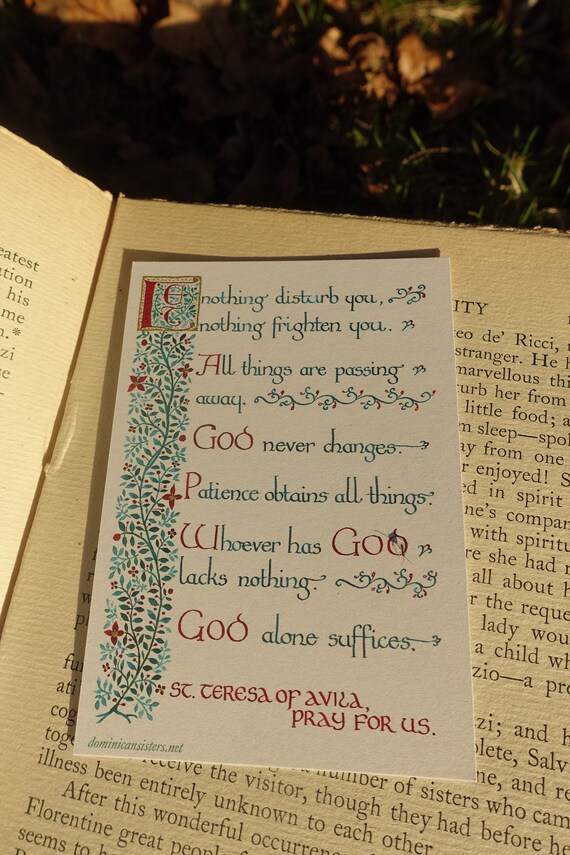 Let nothing disturb you,
nothing frighten you.
All things are passing
away.
God never changes.
Patience obtains all things.
Whoever has God
lacks nothing.
God alone suffices.
St. Teresa of Avila,
pray for us.
dominicansisters.net
eatest
his
me
n.*
zi
ITY
de' Ricci,
stranger. He
marvellous thi
urb her from
little food; a
m sleep—spok
ay from one
r enjoyed! S
ed in spirit
ne's compan
with spiritu
re she had r
all about h
r the reque
lady wou
a child wh
zio—a pro
zi; and h
plete, Salv
ne, and re
receive the visitor, though they had before he
number of sisters who cam
illness been entirely unknown to each other
After this wonderful occurrence
Florentine great people
seems to